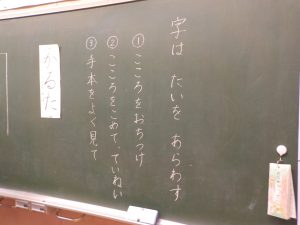 字は たいを あらわす
①こころをおちつけ
②こころをこめて、ていねい
③手本をよく見て
かるた